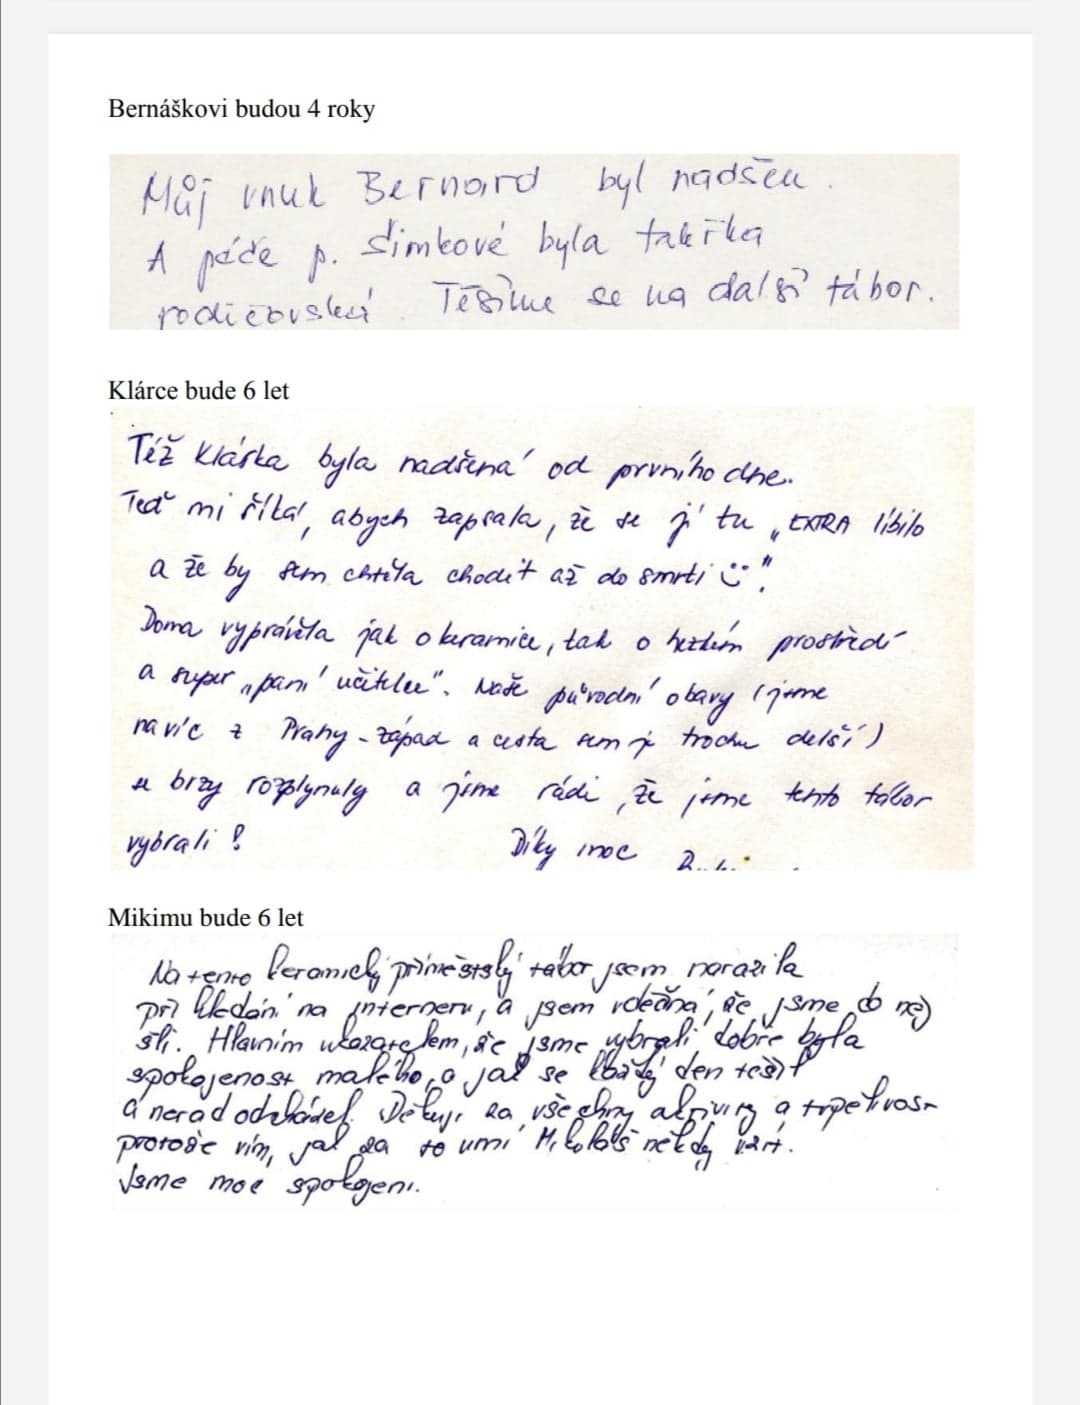 Bernáškovi budou 4 roky
Můj vnuk Bernard byl nadšen.
A péče p. Šimkové byla takřka
rodičovská. Těšíme se na další tábor.
Klárce bude 6 let
Též Klárka byla nadšená od prvního dne.
Teď mi říká, abych zapsala, že se jí tu „EXTRA líbilo
a že by sem chtěla chodit až do smrti ☺“!
Doma vyprávěla jak o keramice, tak o hezkém prostředí
a super „paní učitelce“. Naše původní obavy (jsme
navíc z Prahy-západ a cesta sem je trochu delší)
se brzy rozplynuly a jsme rádi, že jsme tento tábor
vybrali!
Díky moc
Mikimu bude 6 let
Na tento keramický příměstský tábor jsem narazila
při hledání na internetu, a jsem vděčná, že jsme do něj
šli. Hlavním ukazatelem, že jsme vybrali dobře byla
spokojenost malého, a jak se každý den těšil
a nerad odcházel. Děkuji za všechny aktivity a trpělivost
protože vím, jak za to umí Mikoláš někdy vzít.
Jsme moc spokojeni.